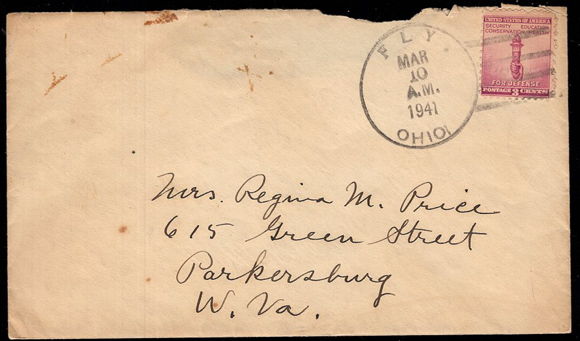 FLY
MAR
10
A.M.
1941
OHIO
UNITED STATES OF AMERICA
SECURITY EDUCATION
CONSERVATION HEALTH
FOR DEFENSE
POSTAGE 3 CENTS
Mrs. Regina M. Price
615 Green Street
Parkersburg
W. Va.